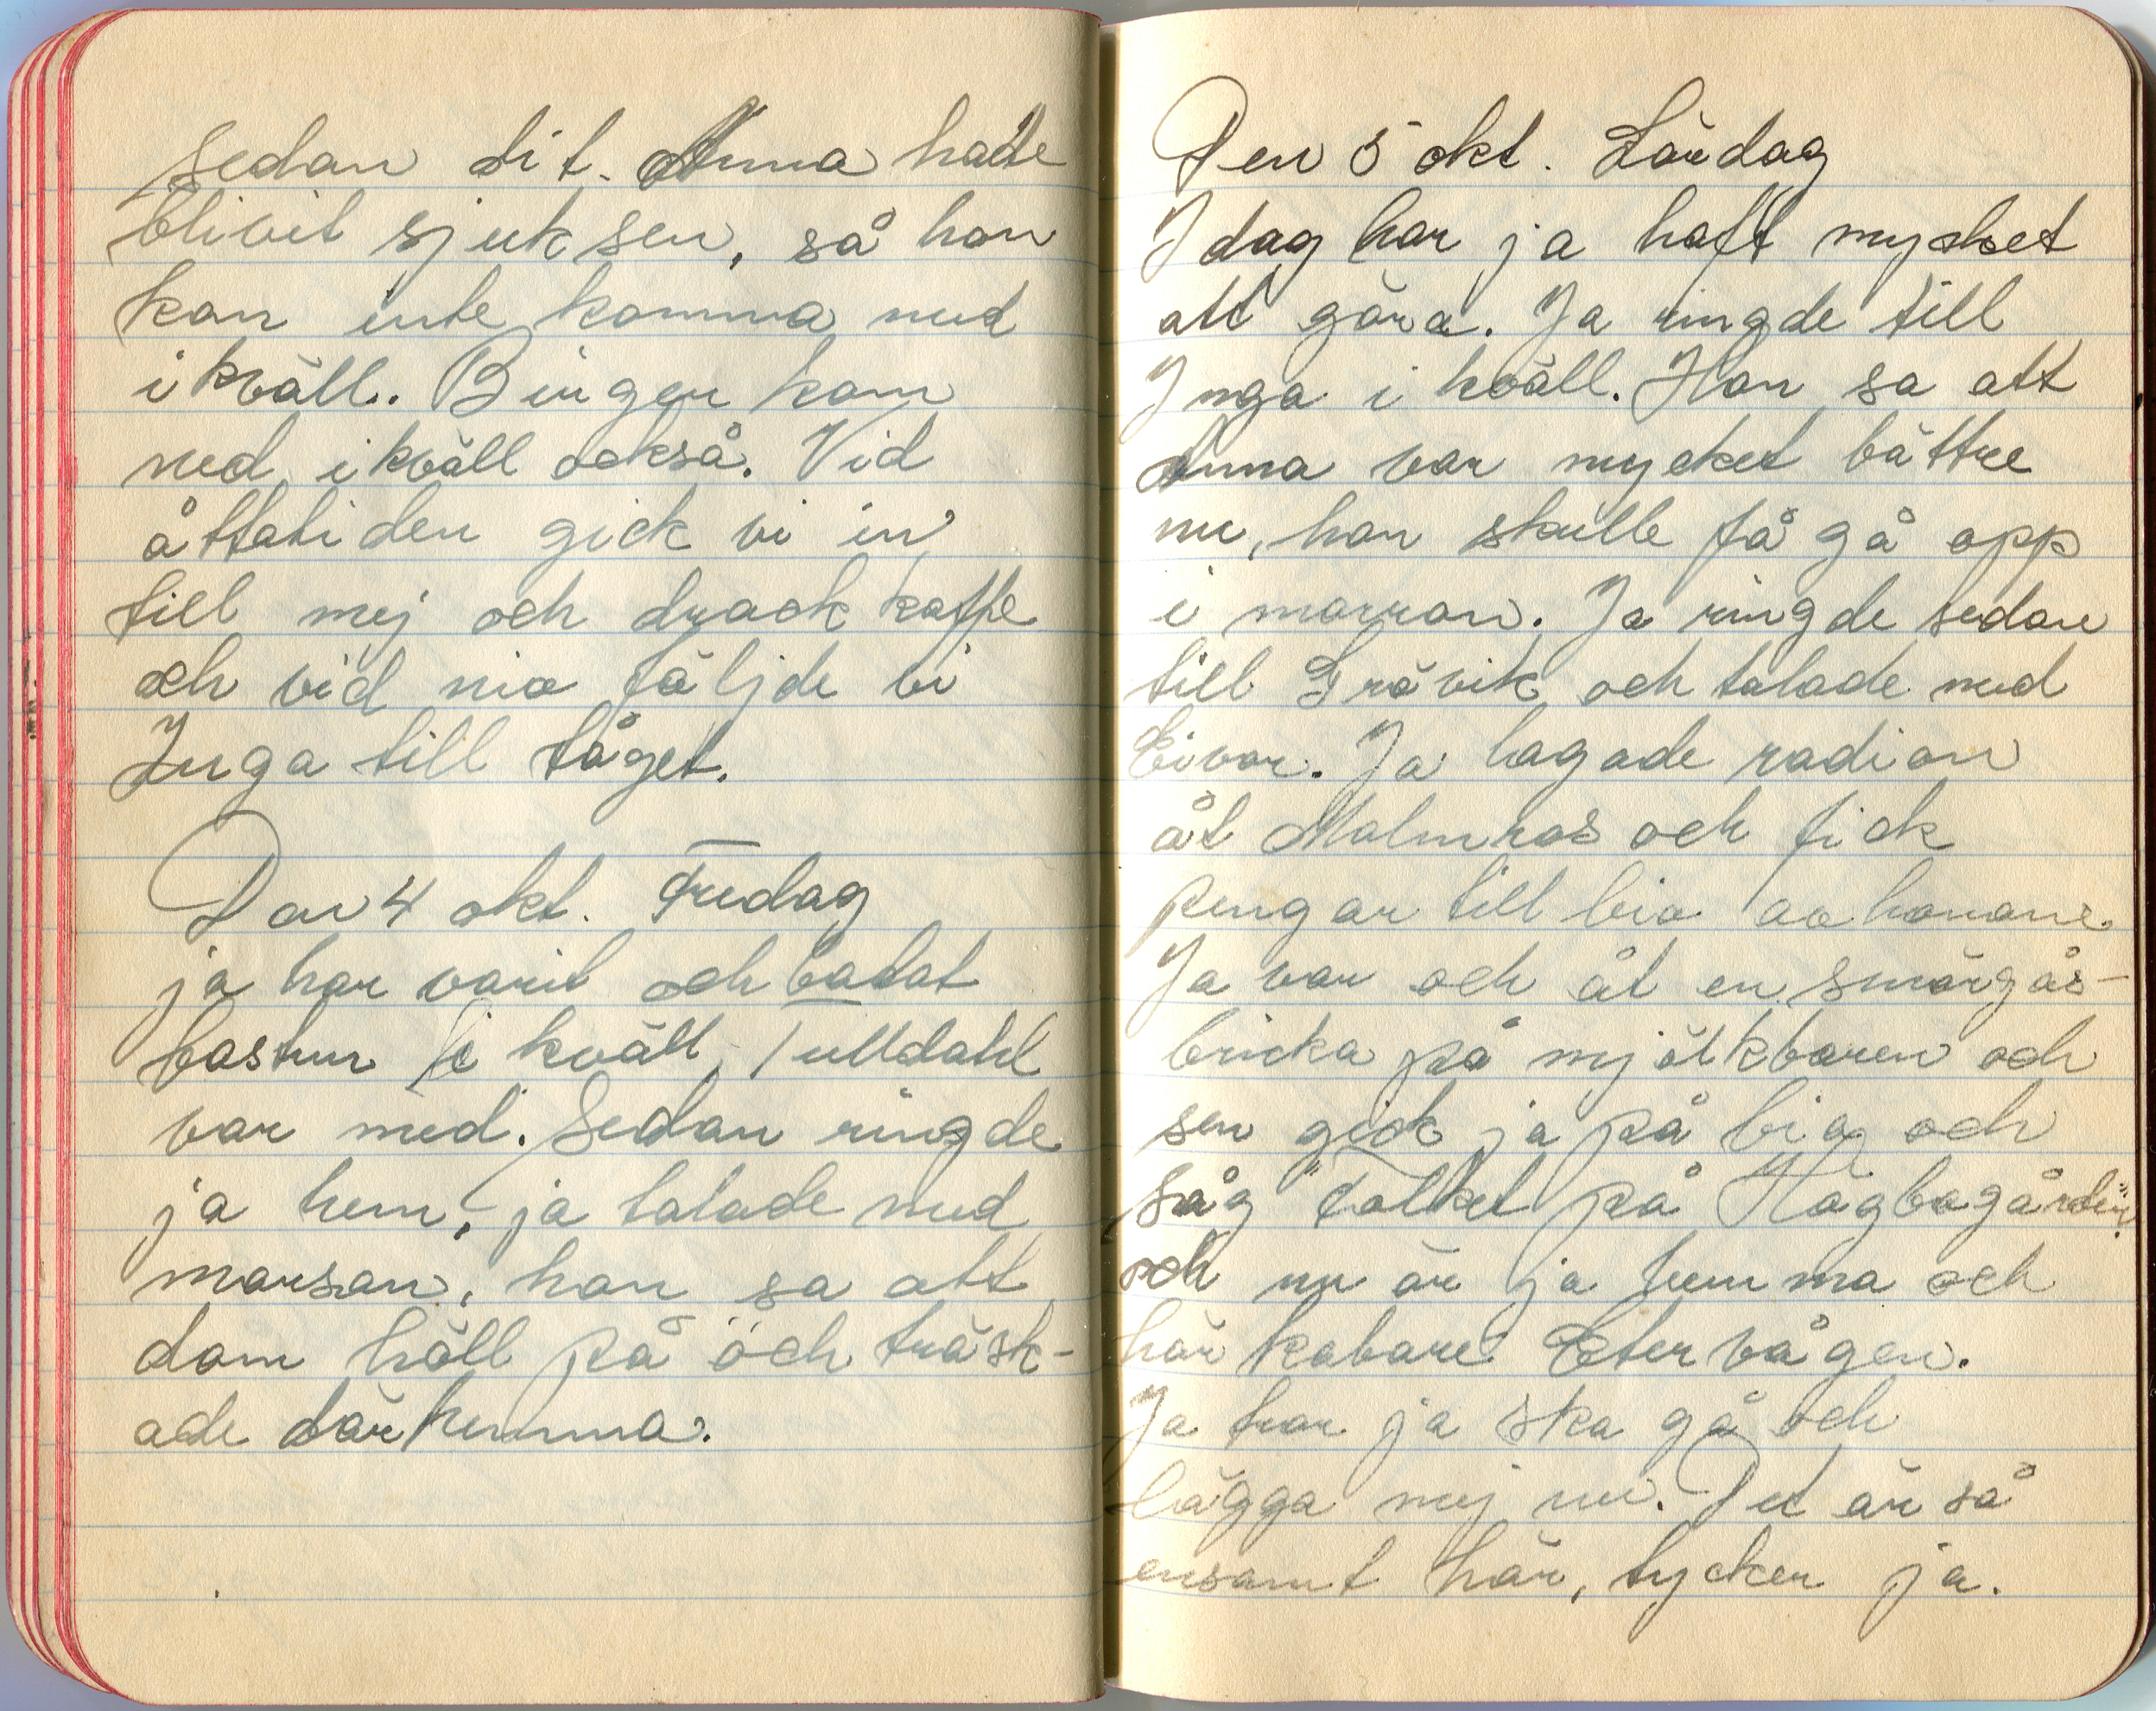 sedan dit. Anna hade
blivit sjuk sen, så hon
kan inte komma med
i kväll. Birger kom
ned i kväll också. Vid
åttatiden gick vi in
till mej och drack kaffe
och vid nio följde vi
Inga till tåget.
Den 4 okt. Fredag
ja har varit och badat
bastun i kväll, Tulldahl
var med. Sedan ringde
ja hem, ja talade med
morsan, hon sa att
dom höll på och trösk-
ade där hemma.
Den 5 okt. Lördag
I dag har ja haft mycket
att göra. Ja ringde till
Inga i kväll. Hon sa att
Anna var mycket bättre
nu, hon skulle få gå opp
i morron. Ja ringde sedan
till Grävik och talade med
Eivor. Ja lagade radion
åt Malmros och fick
pengar till bio av honom.
Ja var och åt en smörgås-
bricka på mjölkbaren och
sen gick ja på bio och
såg "Folket på Högbogården"
och nu är ja hemma och
hör kabare Etervågen.
Ja tror ja ska gå och
lägga mej nu. Det är så
ensamt här, tycker ja.